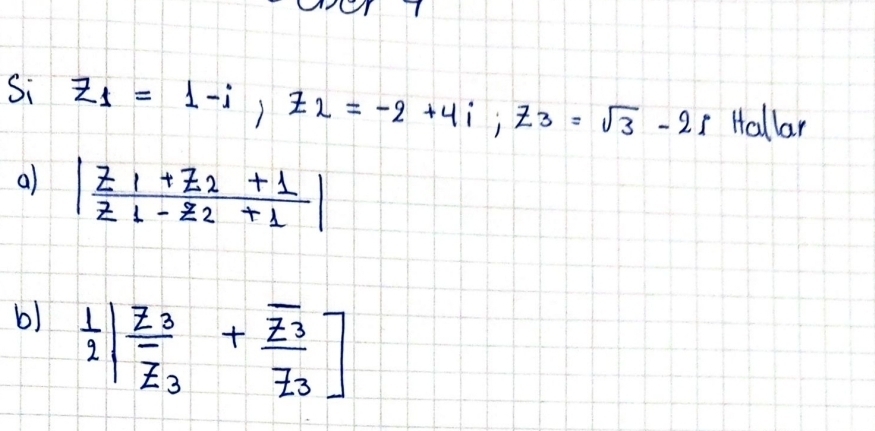 Si Z1 = 1-i ; Z2 = -2 +4i ; Z3 = √3 - 2i Hallar
a) | (Z1 + Z2 + 1) / (Z1 - Z2 + 1) |
b) 1/2 | Z3 / Z̅3 + Z̅3 / Z3 ]